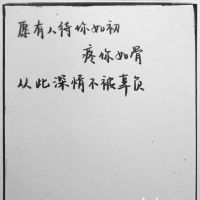 愿有人待你如初
疼你如骨
从此深情不被辜负